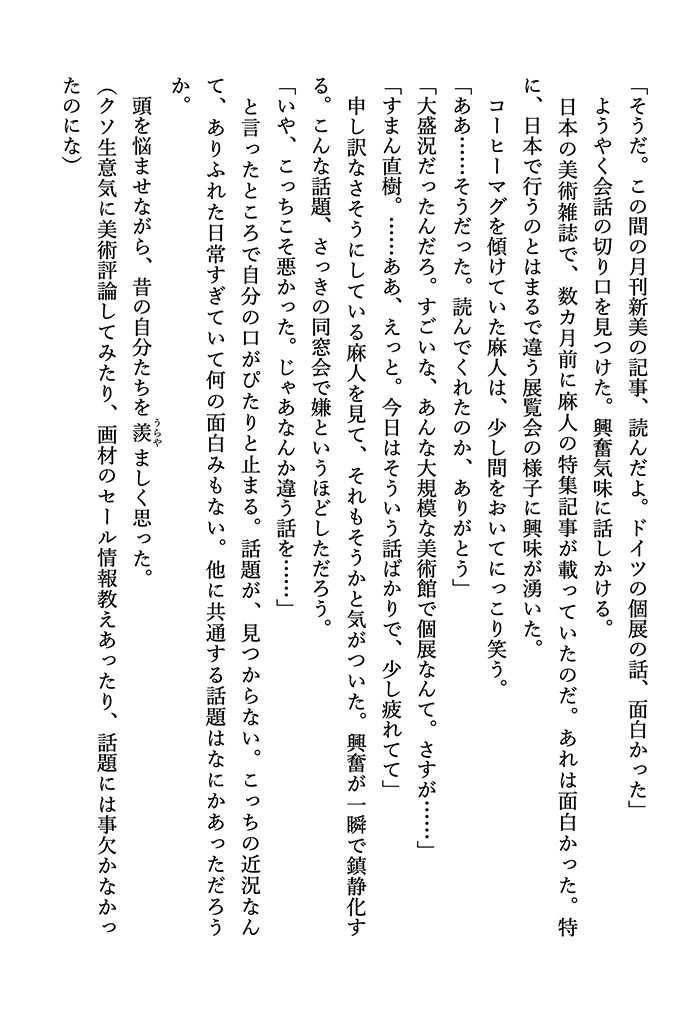 「そうだ。この間の月刊新美の記事、読んだよ。ドイツの個展の話、面白かった」
ようやく会話の切り口を見つけた。興奮気味に話しかける。
日本の美術雑誌で、数カ月前に麻人の特集記事が載っていたのだ。あれは面白かった。特
に、日本で行うのとはまるで違う展覧会の様子に興味が湧いた。
コーヒーマグを傾けていた麻人は、少し間をおいてにっこり笑う。
「ああ……そうだった。読んでくれたのか、ありがとう」
「大盛況だったんだろ。すごいな、あんな大規模な美術館で個展なんて。さすが……」
「すまん直樹。……ああ、えっと。今日はそういう話ばかりで、少し疲れてて」
申し訳なさそうにしている麻人を見て、それもそうかと気がついた。興奮が一瞬で鎮静化す
る。こんな話題、さっきの同窓会で嫌というほどしただろう。
「いや、こっちこそ悪かった。じゃあなんか違う話を……」
と言ったところで自分の口がぴたりと止まる。話題が、見つからない。こっちの近況なん
て、ありふれた日常すぎていて何の面白みもない。他に共通する話題はなにかあっただろう
か。
頭を悩ませながら、昔の自分たちを羨うらやましく思った。
（クソ生意気に美術評論してみたり、画材のセール情報教えあったり、話題には事欠かなかっ
たのにな）